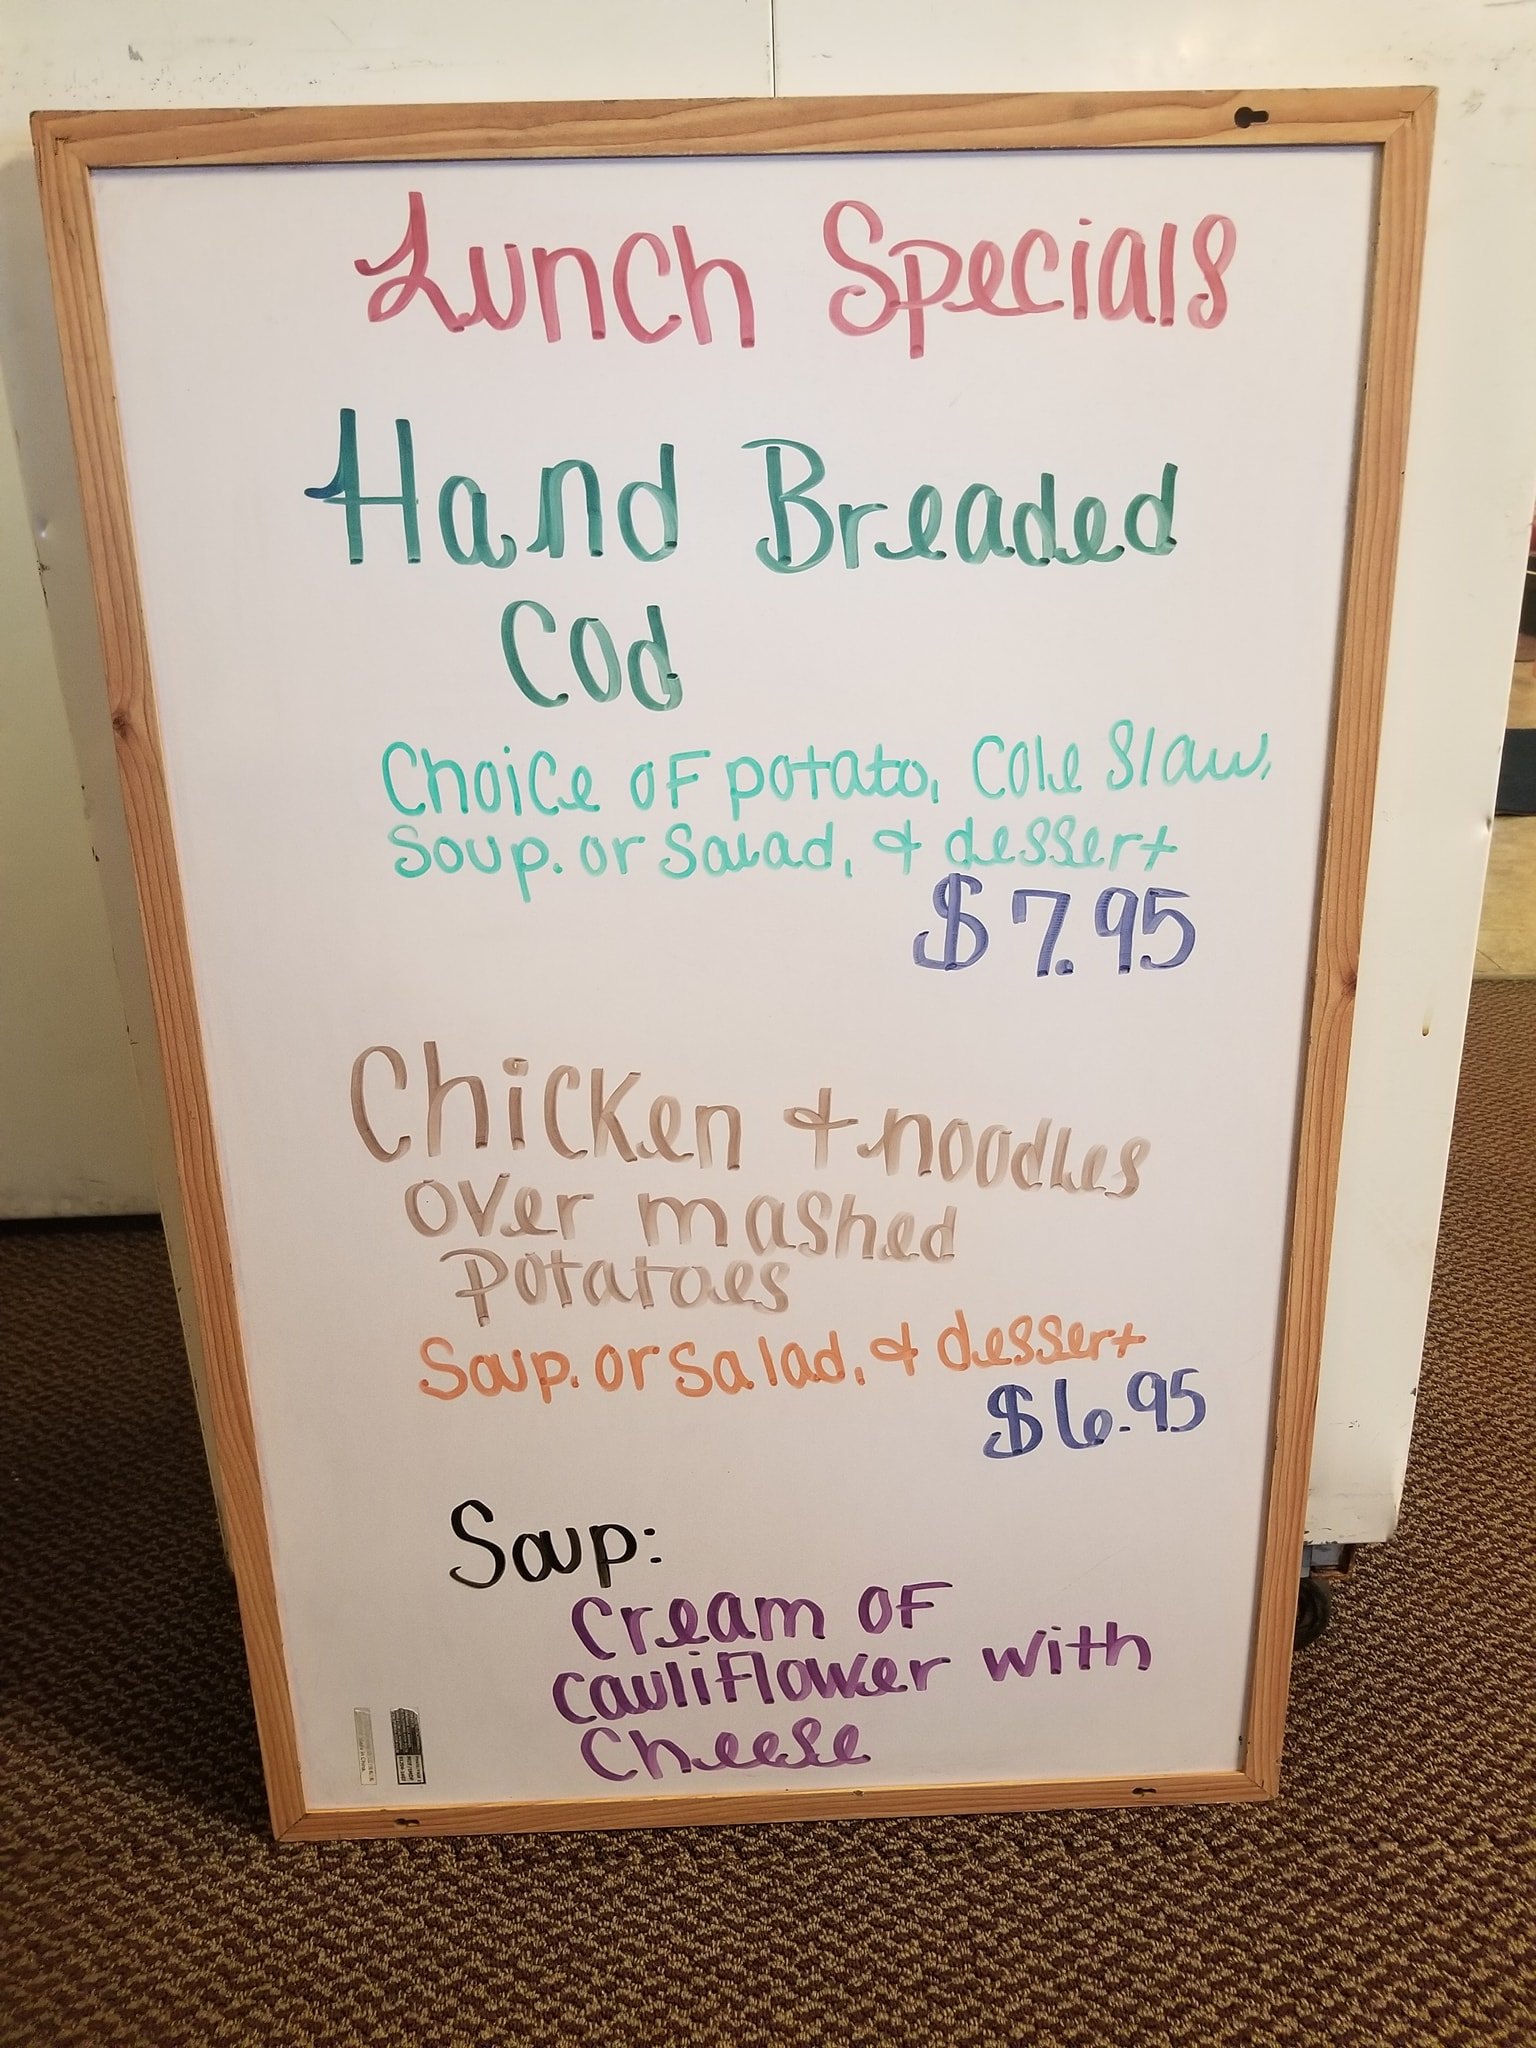 Lunch Specials
Hand Breaded
Cod
Choice of potato, Cole Slaw,
Soup. or Salad, & dessert
$7.95
Chicken & noodles
over mashed
Potatoes
Soup. or Salad, & dessert
$6.95
Soup:
Cream of
Cauliflower with
Cheese